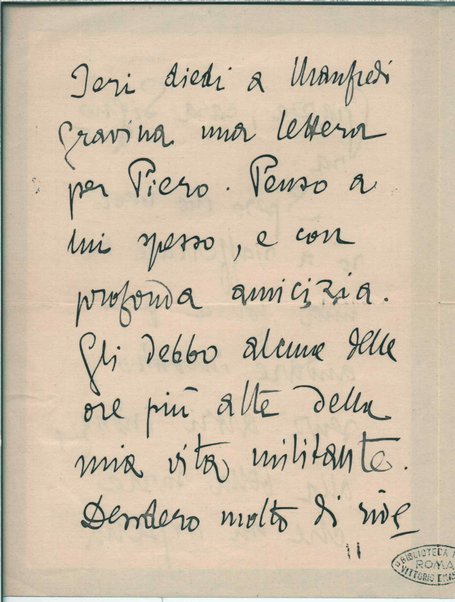 Ieri diedi a Manfredi
Gravina una lettera
per Piero. Penso a
lui spesso, e con
profonda amicizia.
Gli debbo alcune delle
ore più alte della
mia vita militante.
Desidero molto di rive
BIBLIOTECA
ROMA
VITTORIO EMAN